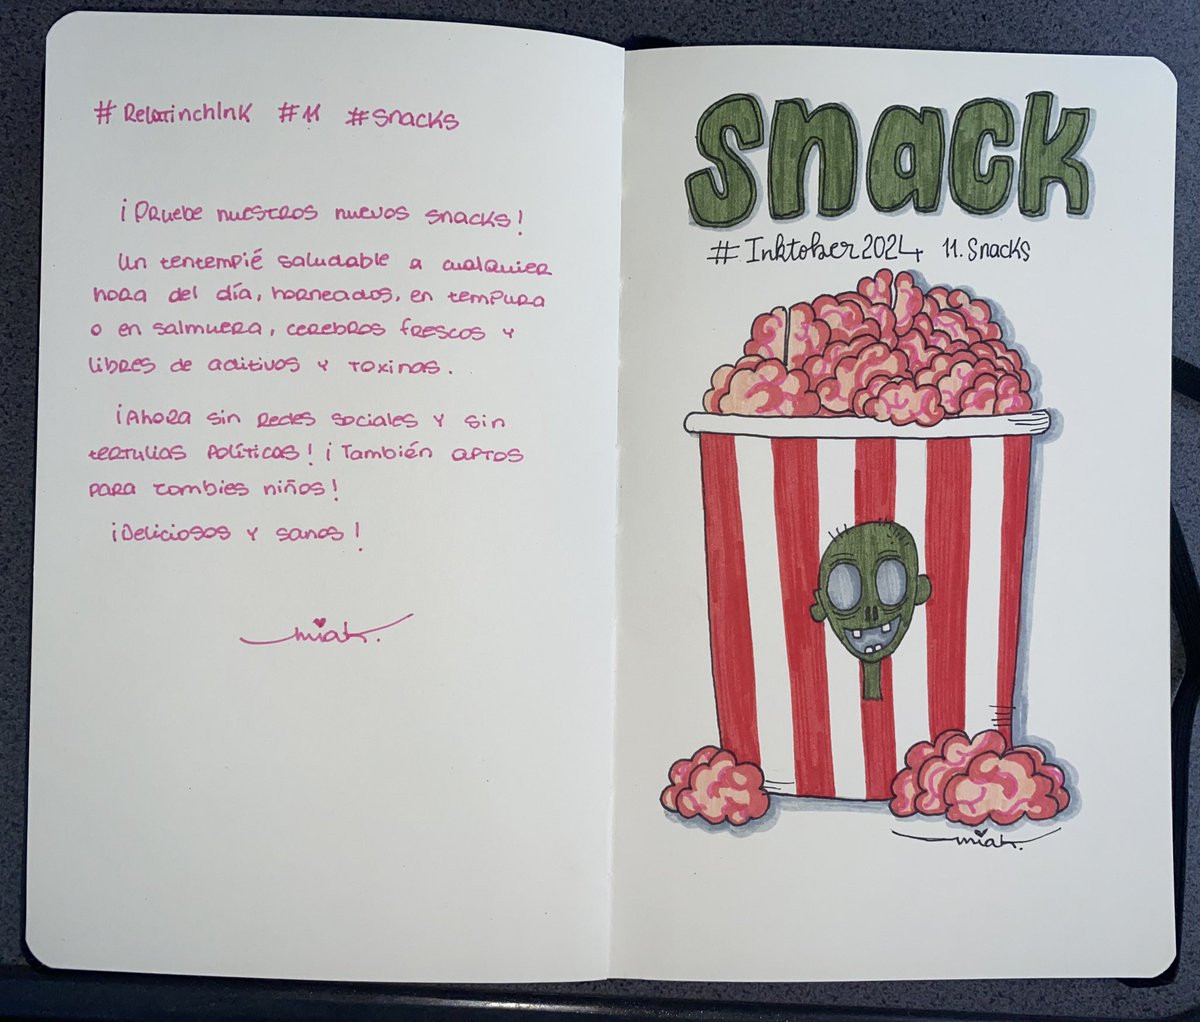 #RelatinchInk #11 #Snacks
¡Pruebe nuestros nuevos snacks!
Un tentempié saludable a cualquier
hora del día, horneados, en tempura
o en salmuera, cerebros frescos y
libres de aditivos y toxinas.
¡Ahora sin redes sociales y sin
tertulias políticas! ¡También aptos
para zombies niños!
¡Deliciosos y sanos!
miak.
Snack
#Inktober2024 11. Snacks
miak.